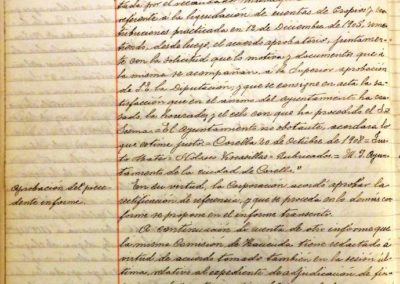 tada por el recaudador
referente á la liquidación de cuentas de Propios y con
tribuciones practicada en 12 de Diciembre de 1905,
desde luego, el acuerdo aprobatorio, juntamen
te con la solicitud que lo motiva y documentos que á
la misma se acompañan, á la Superior aprobación
de S. E. la Diputación, y que se consigne en acta la sa
tisfacción que en el ánimo del ayuntamiento ha cau
sado, la honradez y el celo con que ha procedido el
= El Ayuntamiento no obstante, acordará lo
que estime justo. = Corella 20 de Octubre de 1908 =
= Rubricados = M. I. Ayun
tamiento de la ciudad de Corella."
Aprobación del prece
dente informe.
En su virtud, la Corporación acordó aprobar la
rectificación de referencia, y que se proceda en lo demas con
forme se propone en el informe transcrito.
A continuación se cuenta de otro informe que
la misma Comisión de Hacienda tiene redactado á
virtud de acuerdo tomado también en la sesión úl
tima, relativo al expediente de adjudicación de fin